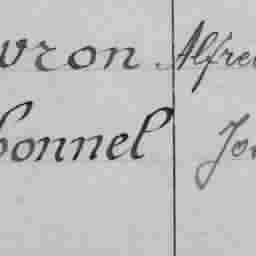 vron Alfre
bonnel Jo